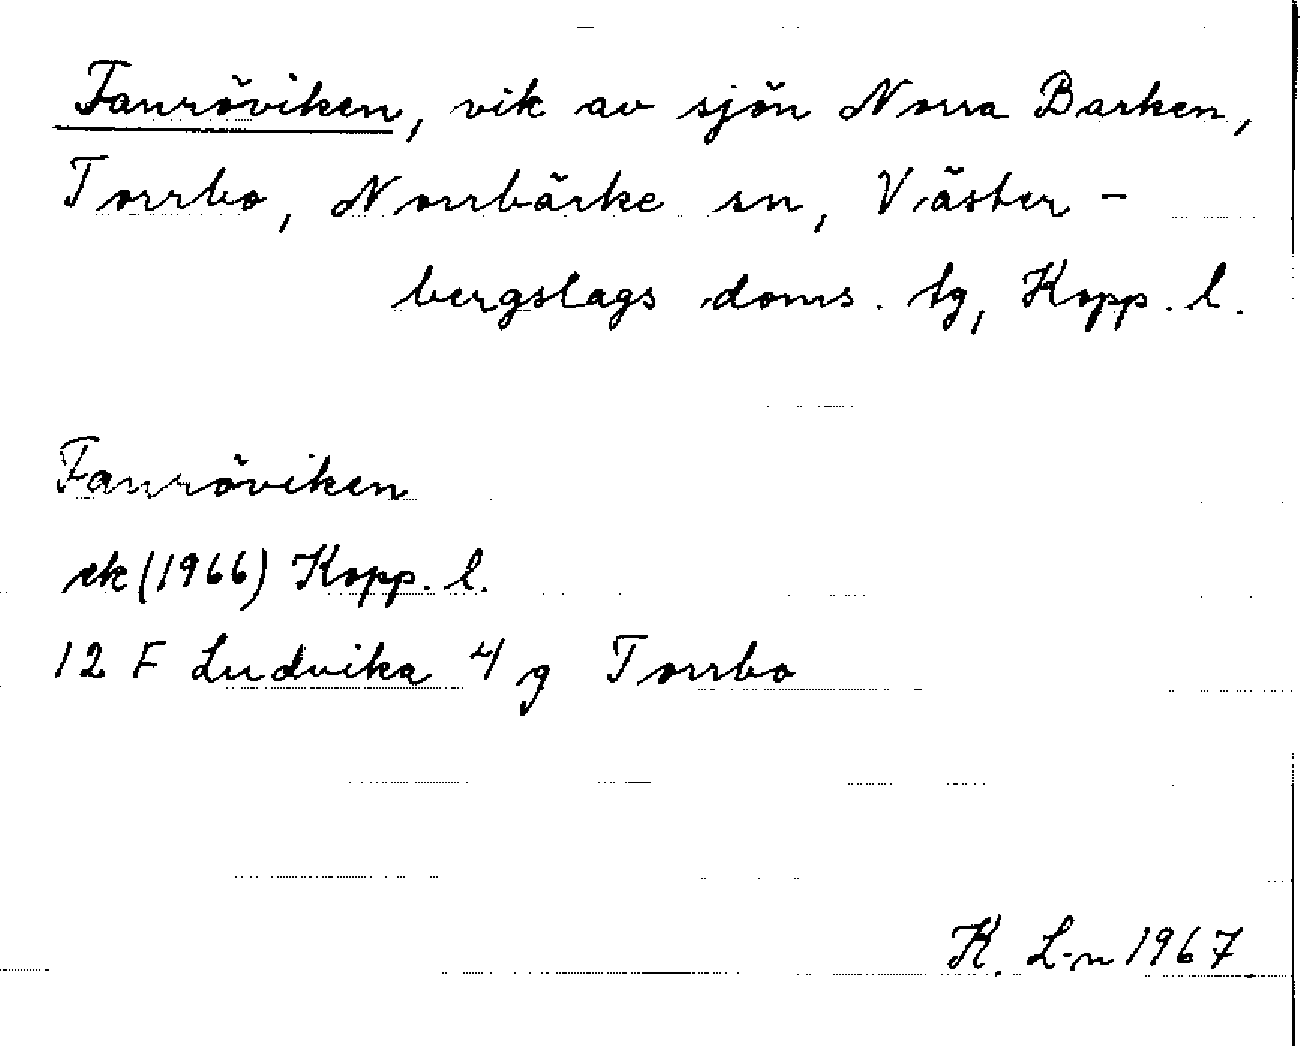 Fanröviken, vik av sjön Norra Barken,
Torrbo, Norrbärke sn, Väster-
bergslags doms. tg, Kopp. l.
Fanröviken
ek (1966) Kopp. l.
12 F Ludvika 4 g Torrbo
K. L-n 1967